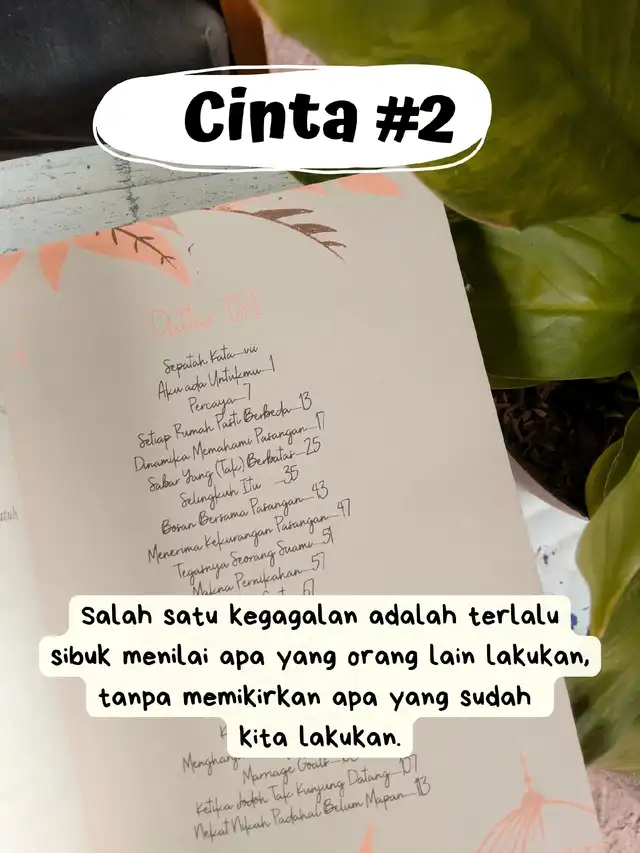 Cinta #2
Daftar ISI
Sepatah Kata vii
Aku ada Untukmu 1
Percaya 7
Setiap Rumah Pasti Berbeda 13
Dinamika Memahami Pasangan 17
Sabar Yang (Tak) Berbatas 25
Selingkuh Itu 35
Bosan Bersama Pasangan 43
Menerima Kekurangan Pasangan 47
Tegarnya Seorang Suami 51
Makna Pernikahan 57
Salah satu kegagalan adalah terlalu
sibuk menilai apa yang orang lain lakukan,
tanpa memikirkan apa yang sudah
kita lakukan.
Marriage Goals
Ketika Jodoh Tak Kunjung Datang 107
Nekat Nikah Padahal Belum Mapan 113